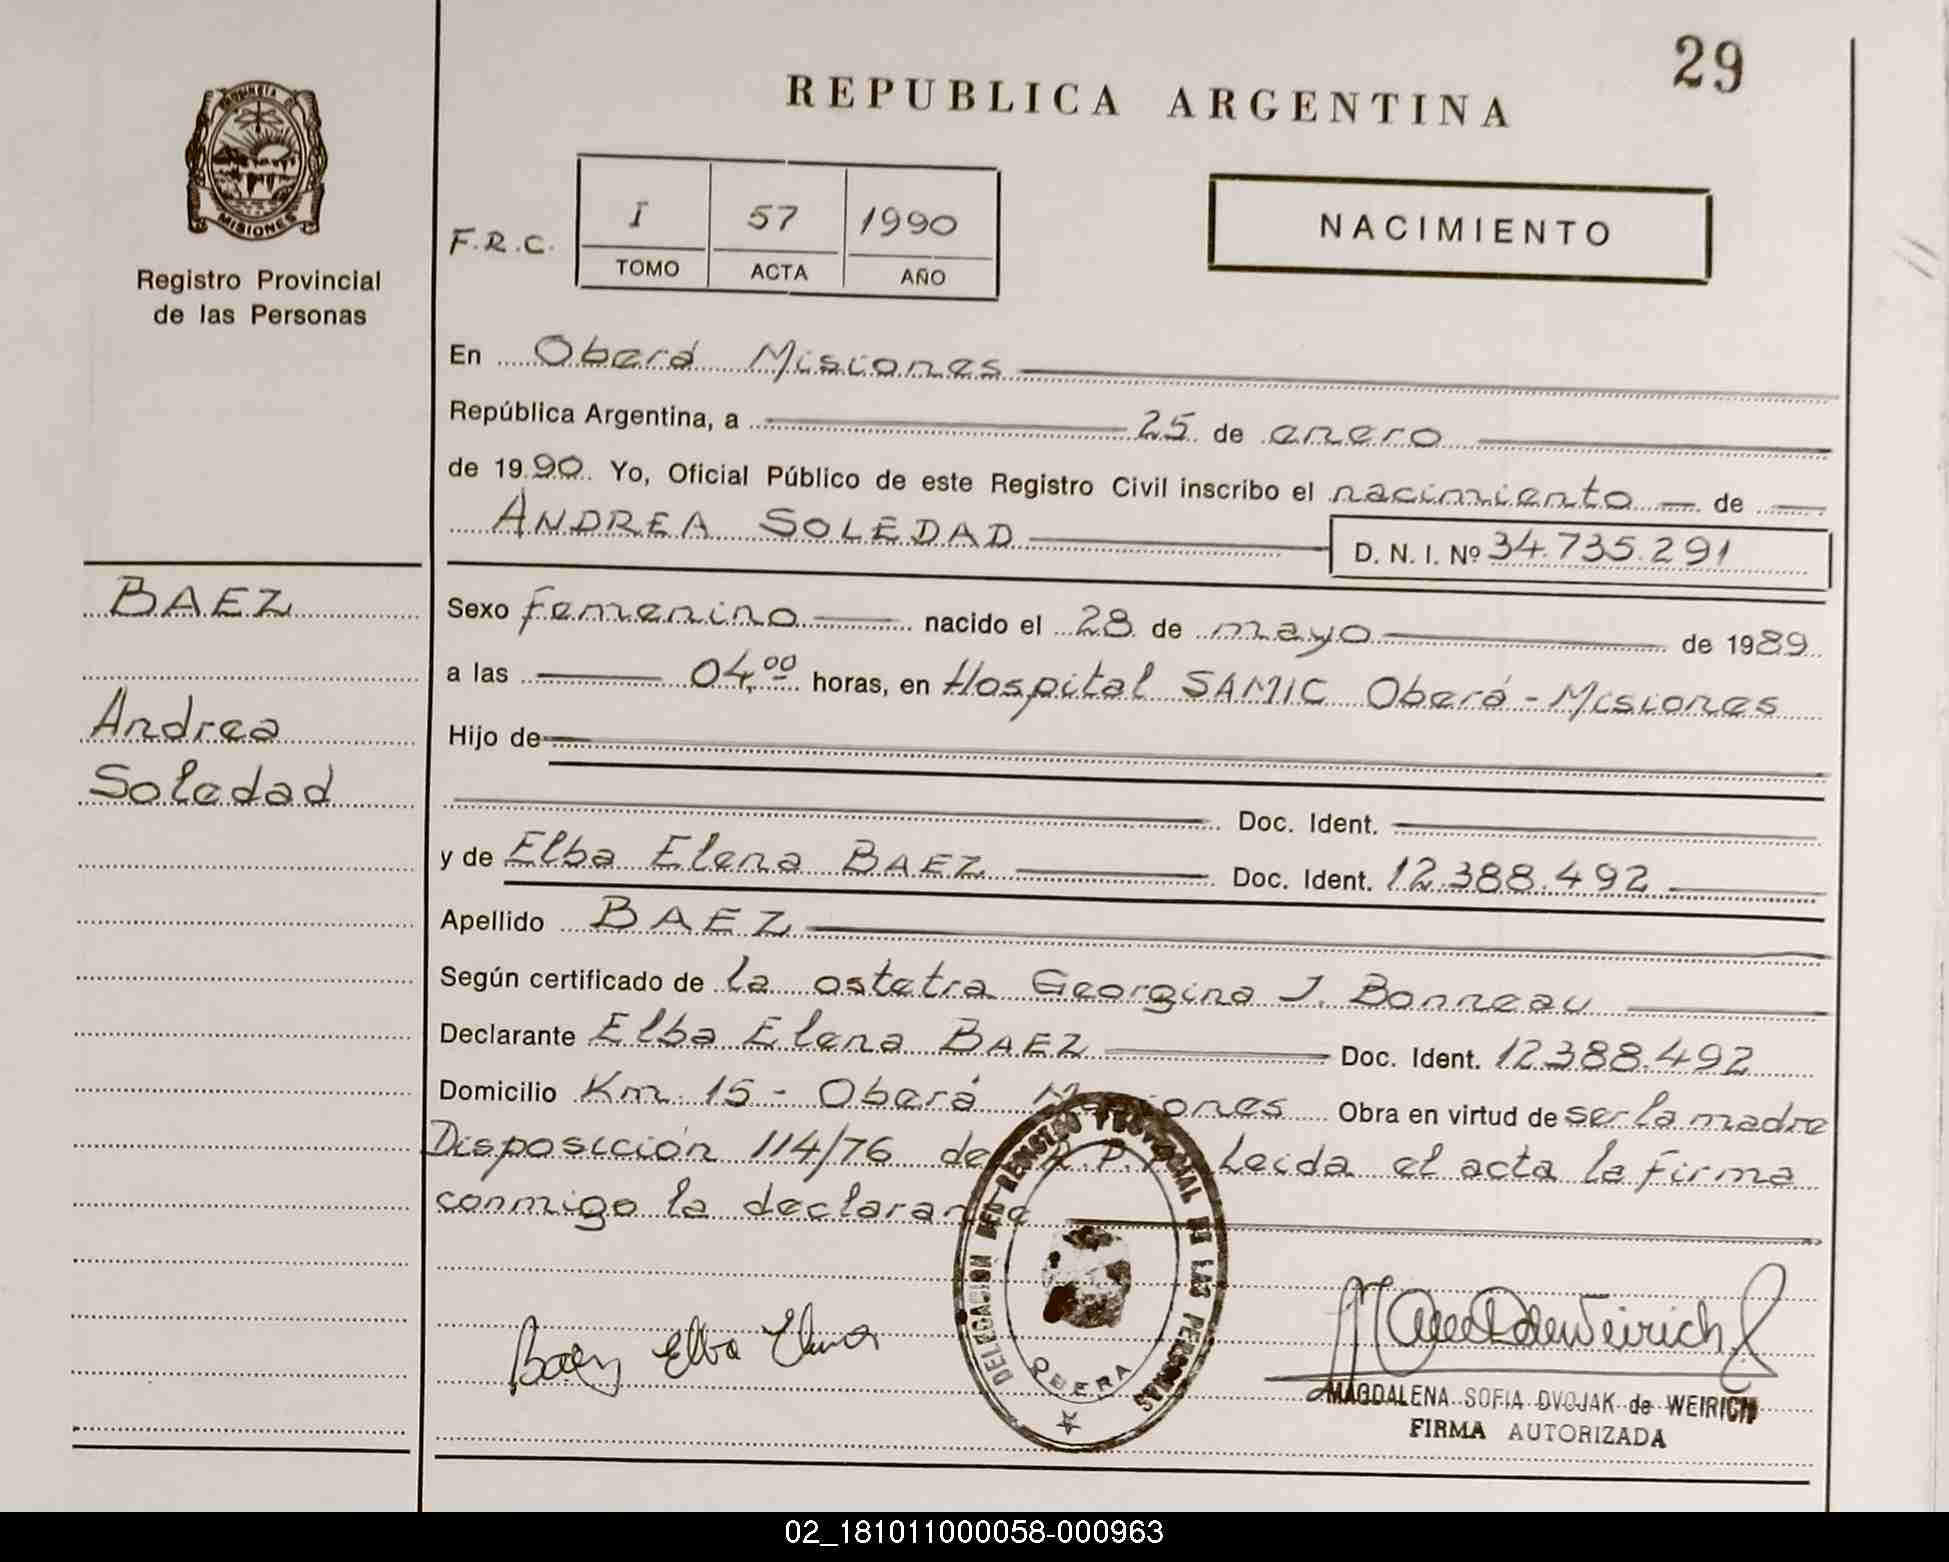 29
REPUBLICA ARGENTINA
PROVINCIA D
MISIONES
Registro Provincial
de las Personas
F.R.C.
I 57 1990
TOMO ACTA AÑO
NACIMIENTO
En Oberá Misiones
República Argentina, a 25 de enero
de 1990. Yo, Oficial Público de este Registro Civil inscribo el nacimiento de
ANDREA SOLEDAD D. N. I. Nº 34.735.291
BAEZ
Andrea
Soledad
Sexo femenino nacido el 28 de mayo de 1989
a las 04,00 horas, en Hospital SAMIC Oberá - Misiones
Hijo de
Doc. Ident.
y de Elba Elena BAEZ Doc. Ident. 12.388.492
Apellido BAEZ
Según certificado de la ostetra Georgina J. Bonneau
Declarante Elba Elena BAEZ Doc. Ident. 12.388.492
Domicilio Km. 15 - Oberá Misiones Obra en virtud de ser la madre
Disposición 114/76 del R.P.P. Leida el acta la firma
conmigo la declarante
DELEGACION DEL REGISTRO PROVINCIAL DE LAS PERSONAS
OBERA
Baez Elba Elena
MAGDALENA SOFIA DVOJAK de WEIRICH
FIRMA AUTORIZADA
02_181011000058-000963